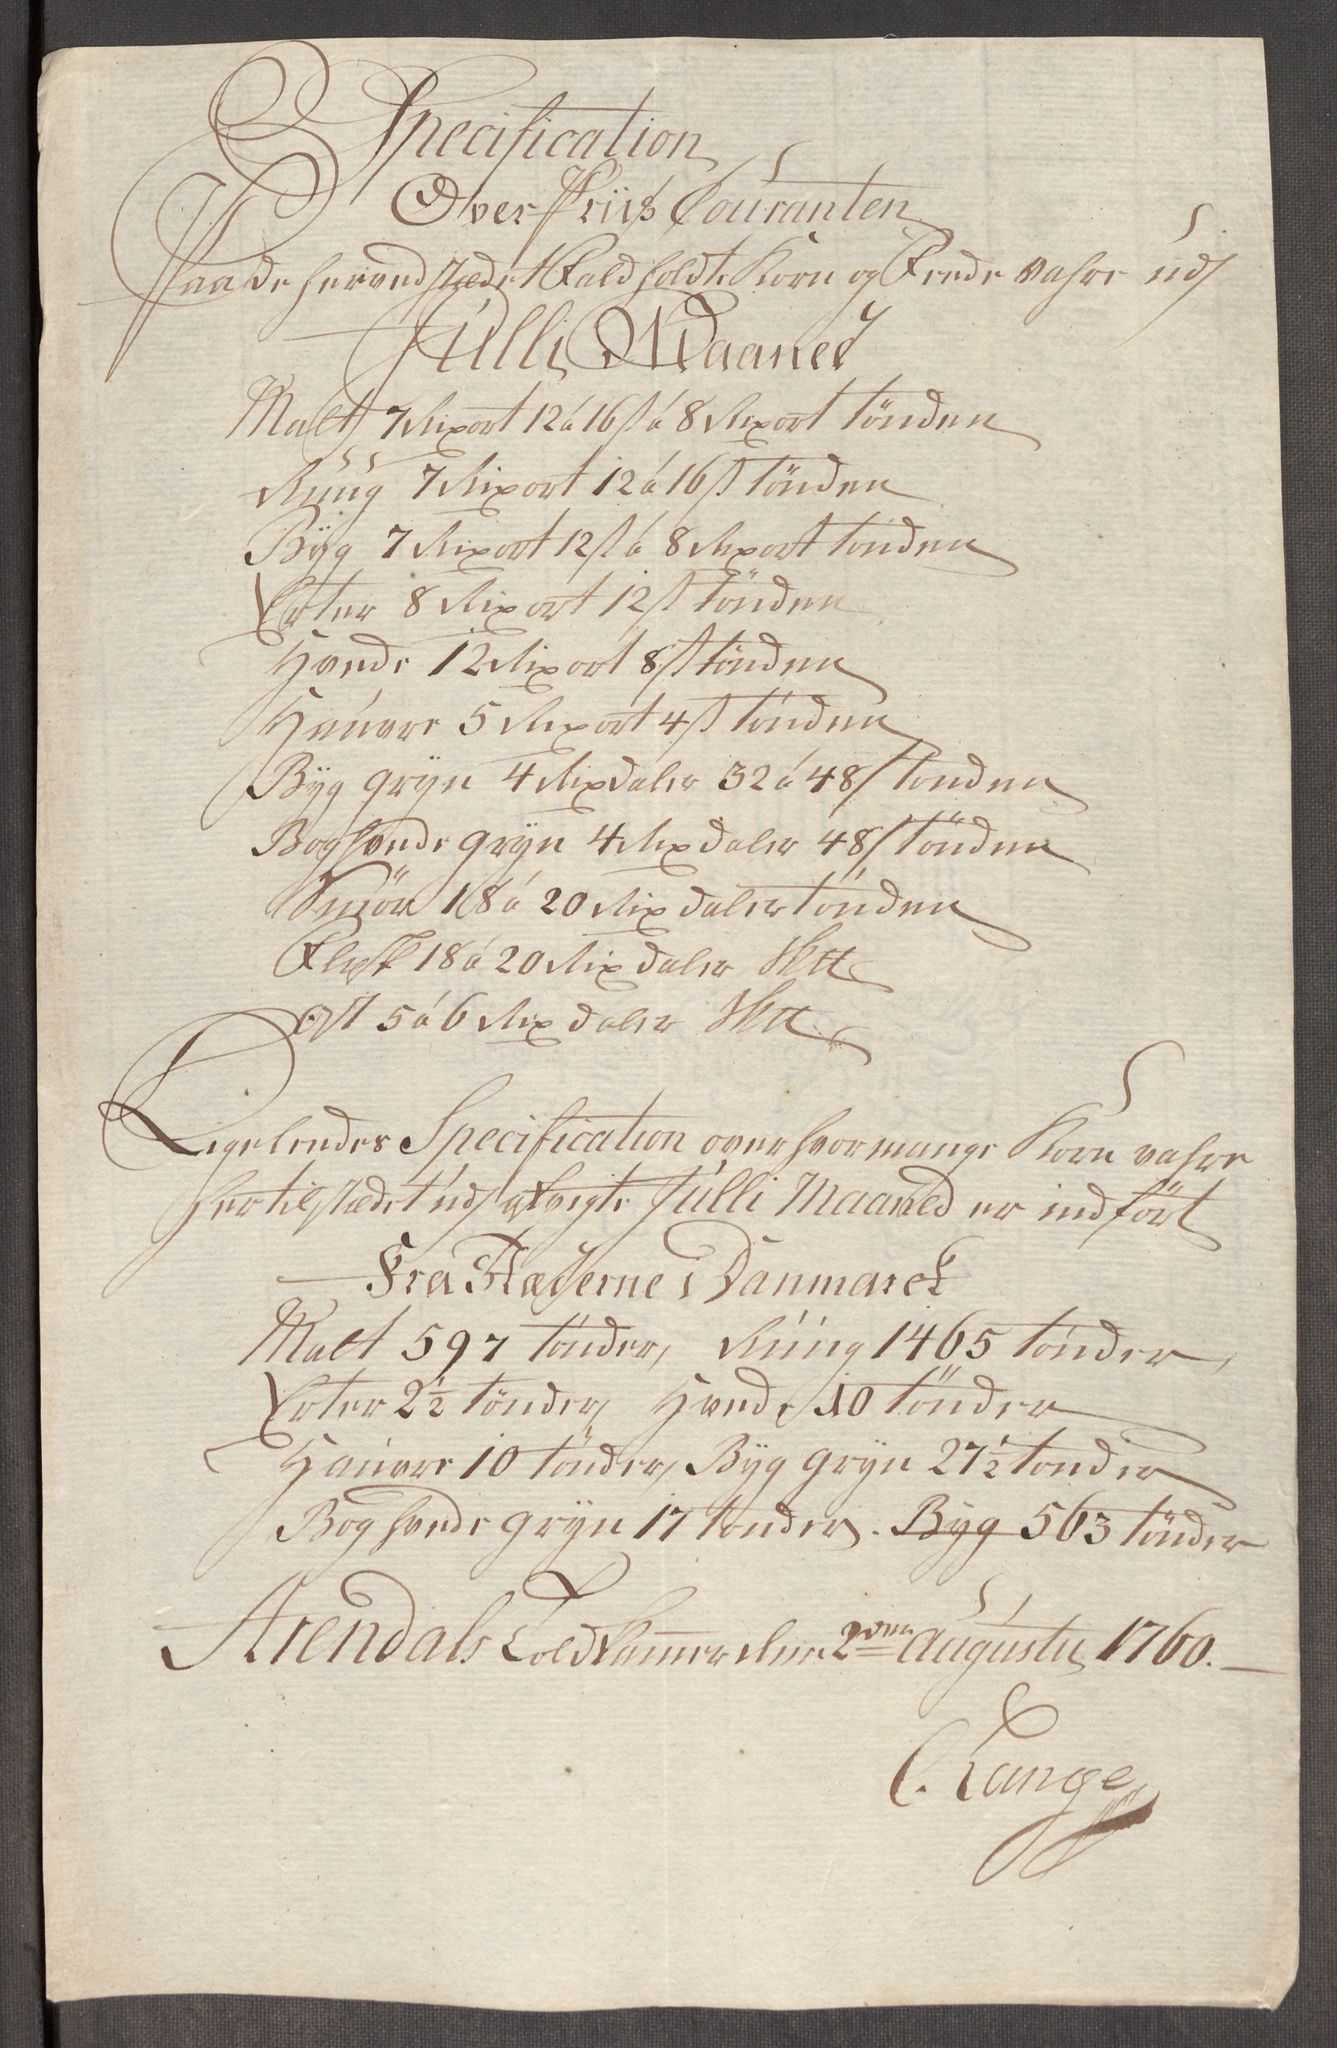 Specification
Over Priis Couranten
Paa de her ved stædet falholdte Korn og Fede vahre udj
Julli Maanet
Malt 7 Rixort 12 á 16 s á 8 Rixort tönden
Rúúg 7 Rixort 12 á 16 s tönden
Byg 7 Rixort 12 s á 8 Rixort tönden
Erter 8 Rixort 12 s tönden
Hvede 12 Rixort 8 s tönden
Haúvre 5 Rixort 4 s tönden
Byg gryn 4 Rixdaler 32 á 48 s tönden
Boghvede gryn 4 Rixdaler 48 s tönden
Smör 18 á 20 Rixdaler tönden
Flesk 18 á 20 Rixdaler
Ost 5 á 6 Rixdaler
Ligeleedes Specification over hvor mange Korn vahre
her til stædet udj Julli Maaned er indfört
Fra Stæderne i Danmarck
Malt 597 tönder, Rúúg 1465 tönder,
Erter 2 1/2 tönder, Hvede 10 tönder
Haúvre 10 tönder, Byg gryn 27 1/2 tönder
Boghvede gryn 17 tönder. Byg 563 tönder
Arendals Told Cammer den 2den Augusty 1760.
C. Lange